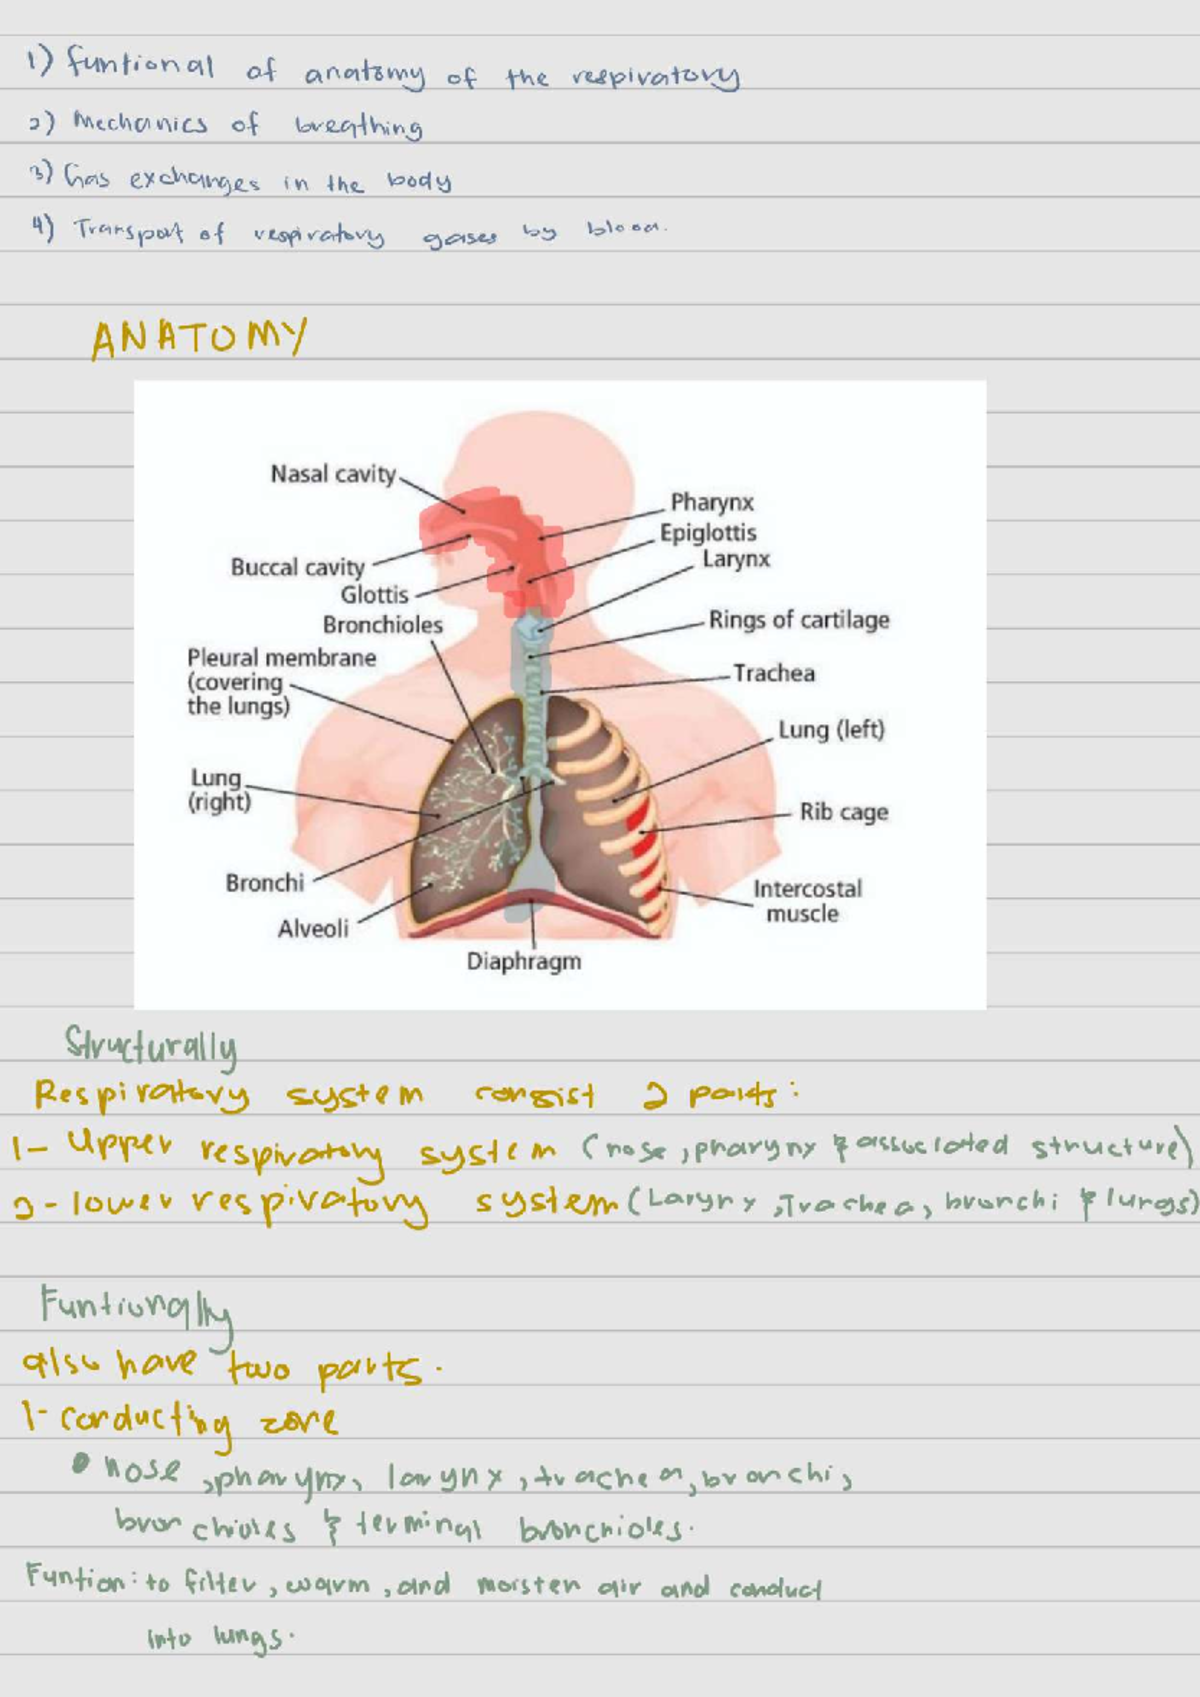 1) funtional of anatomy of the respiratory
2) Mechanics of breathing
3) Gas exchanges in the body
4) Transport of respiratory gases by blood.
ANATOMY
Nasal cavity
Pharynx
Epiglottis
Larynx
Buccal cavity
Glottis
Bronchioles
Rings of cartilage
Pleural membrane
(covering
the lungs)
Trachea
Lung (left)
Lung
(right)
Rib cage
Bronchi
Intercostal
muscle
Alveoli
Diaphragm
Structurally
Respiratory system consist 2 parts:
1- Upper respiratory system (nose, pharynx & associated structure)
2- lower respiratory system (Larynx, Trachea, bronchi & lungs)
Funtionally
also have two parts.
1- conducting zone
• nose, pharynx, larynx, trachea, bronchi,
bronchioles & terminal bronchioles.
Funtion: to filter, warm, and moisten air and conduct
into lungs.